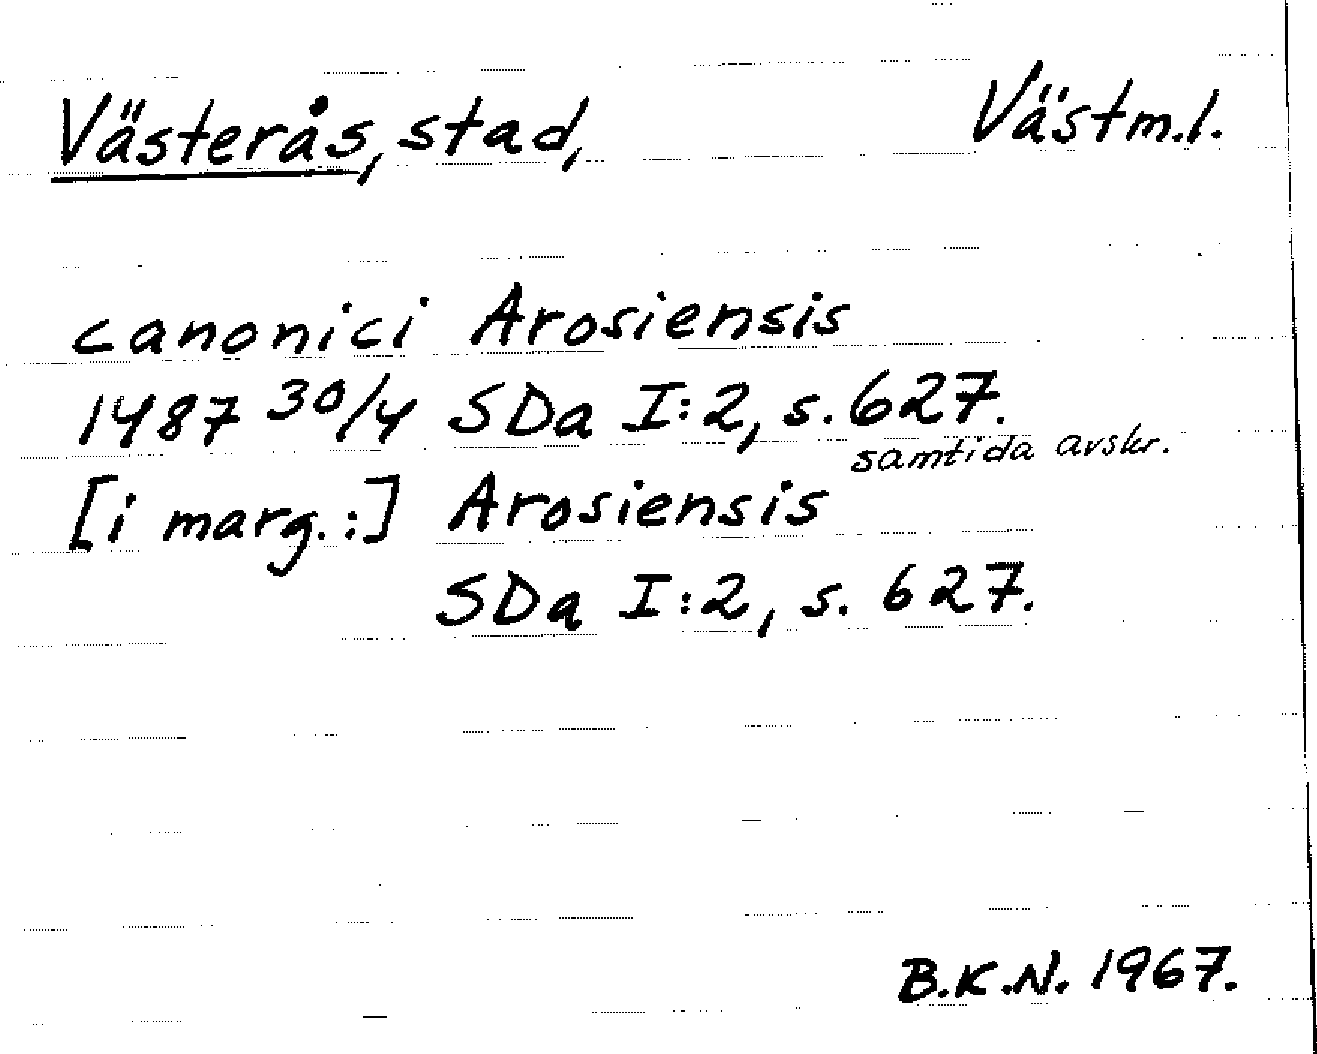 Västerås, stad, Västm.l.
canonici Arosiensis
1487 30/4 SDa I:2, s. 627.
samtida avskr.
[i marg.:] Arosiensis
SDa I:2, s. 627.
B.K.N. 1967.